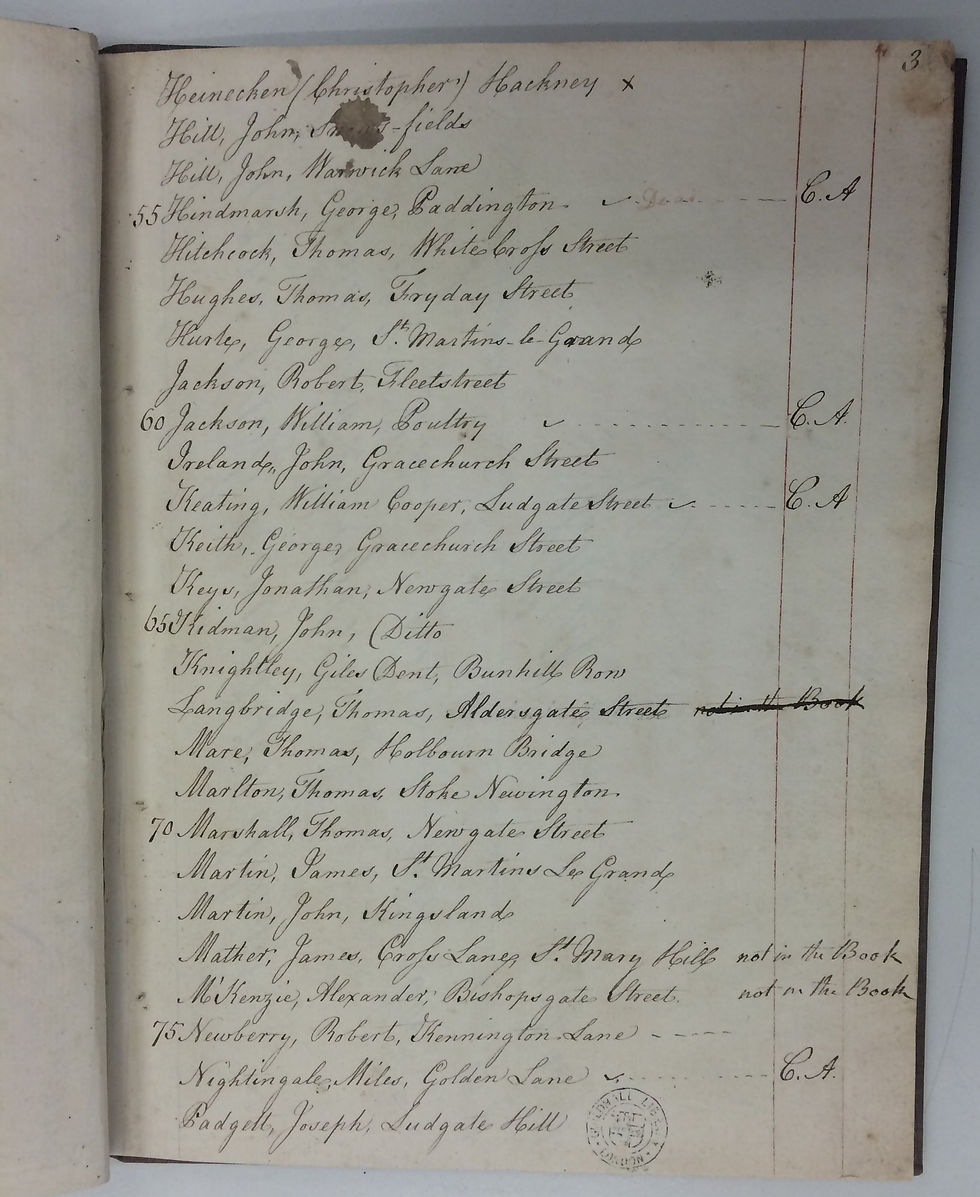 3
Heinecken (Christopher) Hackney x
Hill, John, -fields
Hill, John, Warwick Lane
55 Hindmarsh, George, Paddington C. A
Hitchcock, Thomas, White Croſs Street
Hughes, Thomas, Fryday Street
Hurle, George, St. Martins-le-Grand
Jackson, Robert, Fleetstreet
60 Jackson, William, Poultry C. A.
Ireland, John, Gracechurch Street
Keating, William Cooper, Ludgate Street C. A
Keith, George, Gracechurch Street
Keys, Jonathan, Newgate Street
65 Kidman, John, Ditto
Knightley, Giles Dent, Bunhill Row
Langbridge, Thomas, Aldersgate Street not in the Book
Mare, Thomas, Holbourn Bridge
Marlton, Thomas, Stoke Newington
70 Marshall, Thomas, Newgate Street
Martin, James, St. Martins Le Grand
Martin, John, Kingsland
Mather, James, Croſs Lane, St. Mary Hill not in the Book
McKenzie, Alexander, Bishopsgate Street. not in the Book
75 Newberry, Robert, Kennington Lane
Nightingale, Miles, Golden Lane C. A.
Padgett, Joseph, Ludgate Hill
GUILDHALL LIBRARY LONDON